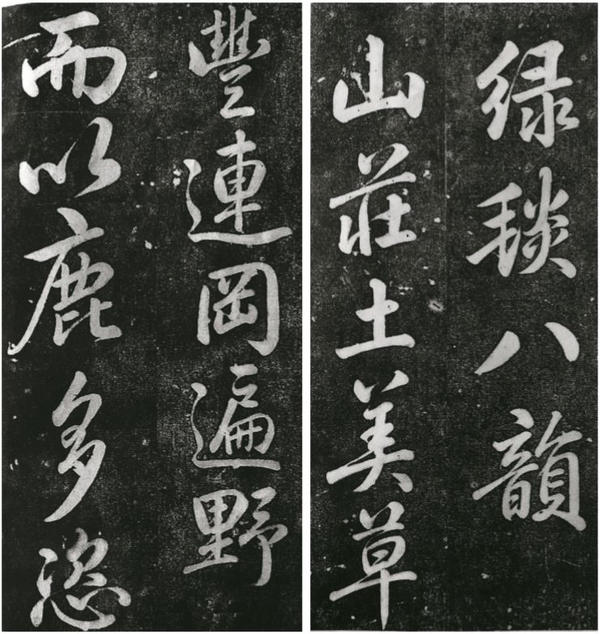 綠毯八韻
山莊土美草
豐連岡遍野
而以鹿多恣